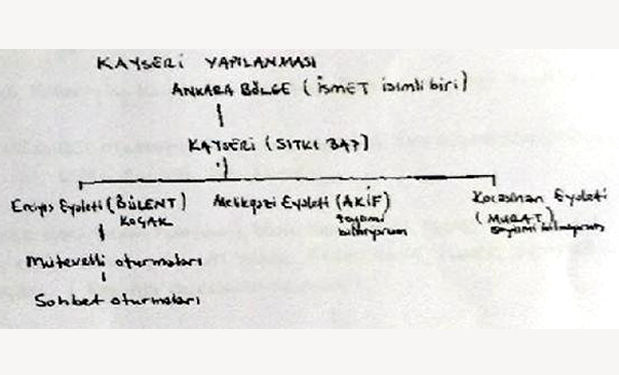 KAYSERİ YAPILANMASI
ANKARA BÖLGE (İSMET isimli biri)
KAYSERİ (SITKI BAŞ)
Erciyes Eyaleti (BÜLENT) Melikgazi Eyaleti (AKİF) Kocasinan Eyaleti
KOÇAK soyismi (MURAT)
bilmiyorum soyismi bilmiyorum
Mütevelli oturmaları
Sohbet oturmaları